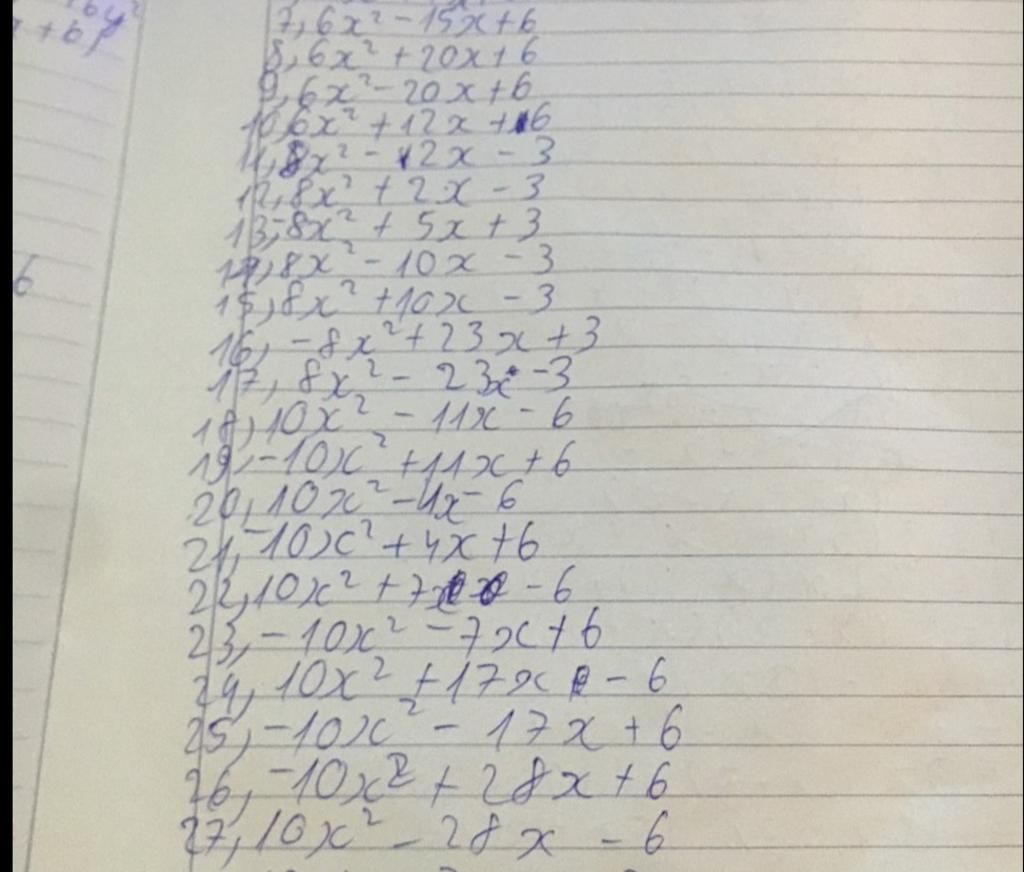 6y²
+6y
6
7, 6x² - 15x + 6
8, 6x² + 20x + 6
9, 6x² - 20x + 6
10, 6x² + 12x + 6
11, 8x² - 2x - 3
12, 8x² + 2x - 3
13, -8x² + 5x + 3
14, 8x² - 10x - 3
15, 8x² + 10x - 3
16, -8x² + 23x + 3
17, 8x² - 23x - 3
18, 10x² - 11x - 6
19, -10x² + 11x + 6
20, 10x² - 4x - 6
21, -10x² + 4x + 6
22, 10x² + 7x - 6
23, -10x² - 7x + 6
24, 10x² + 17x - 6
25, -10x² - 17x + 6
26, -10x² + 28x + 6
27, 10x² - 28x - 6